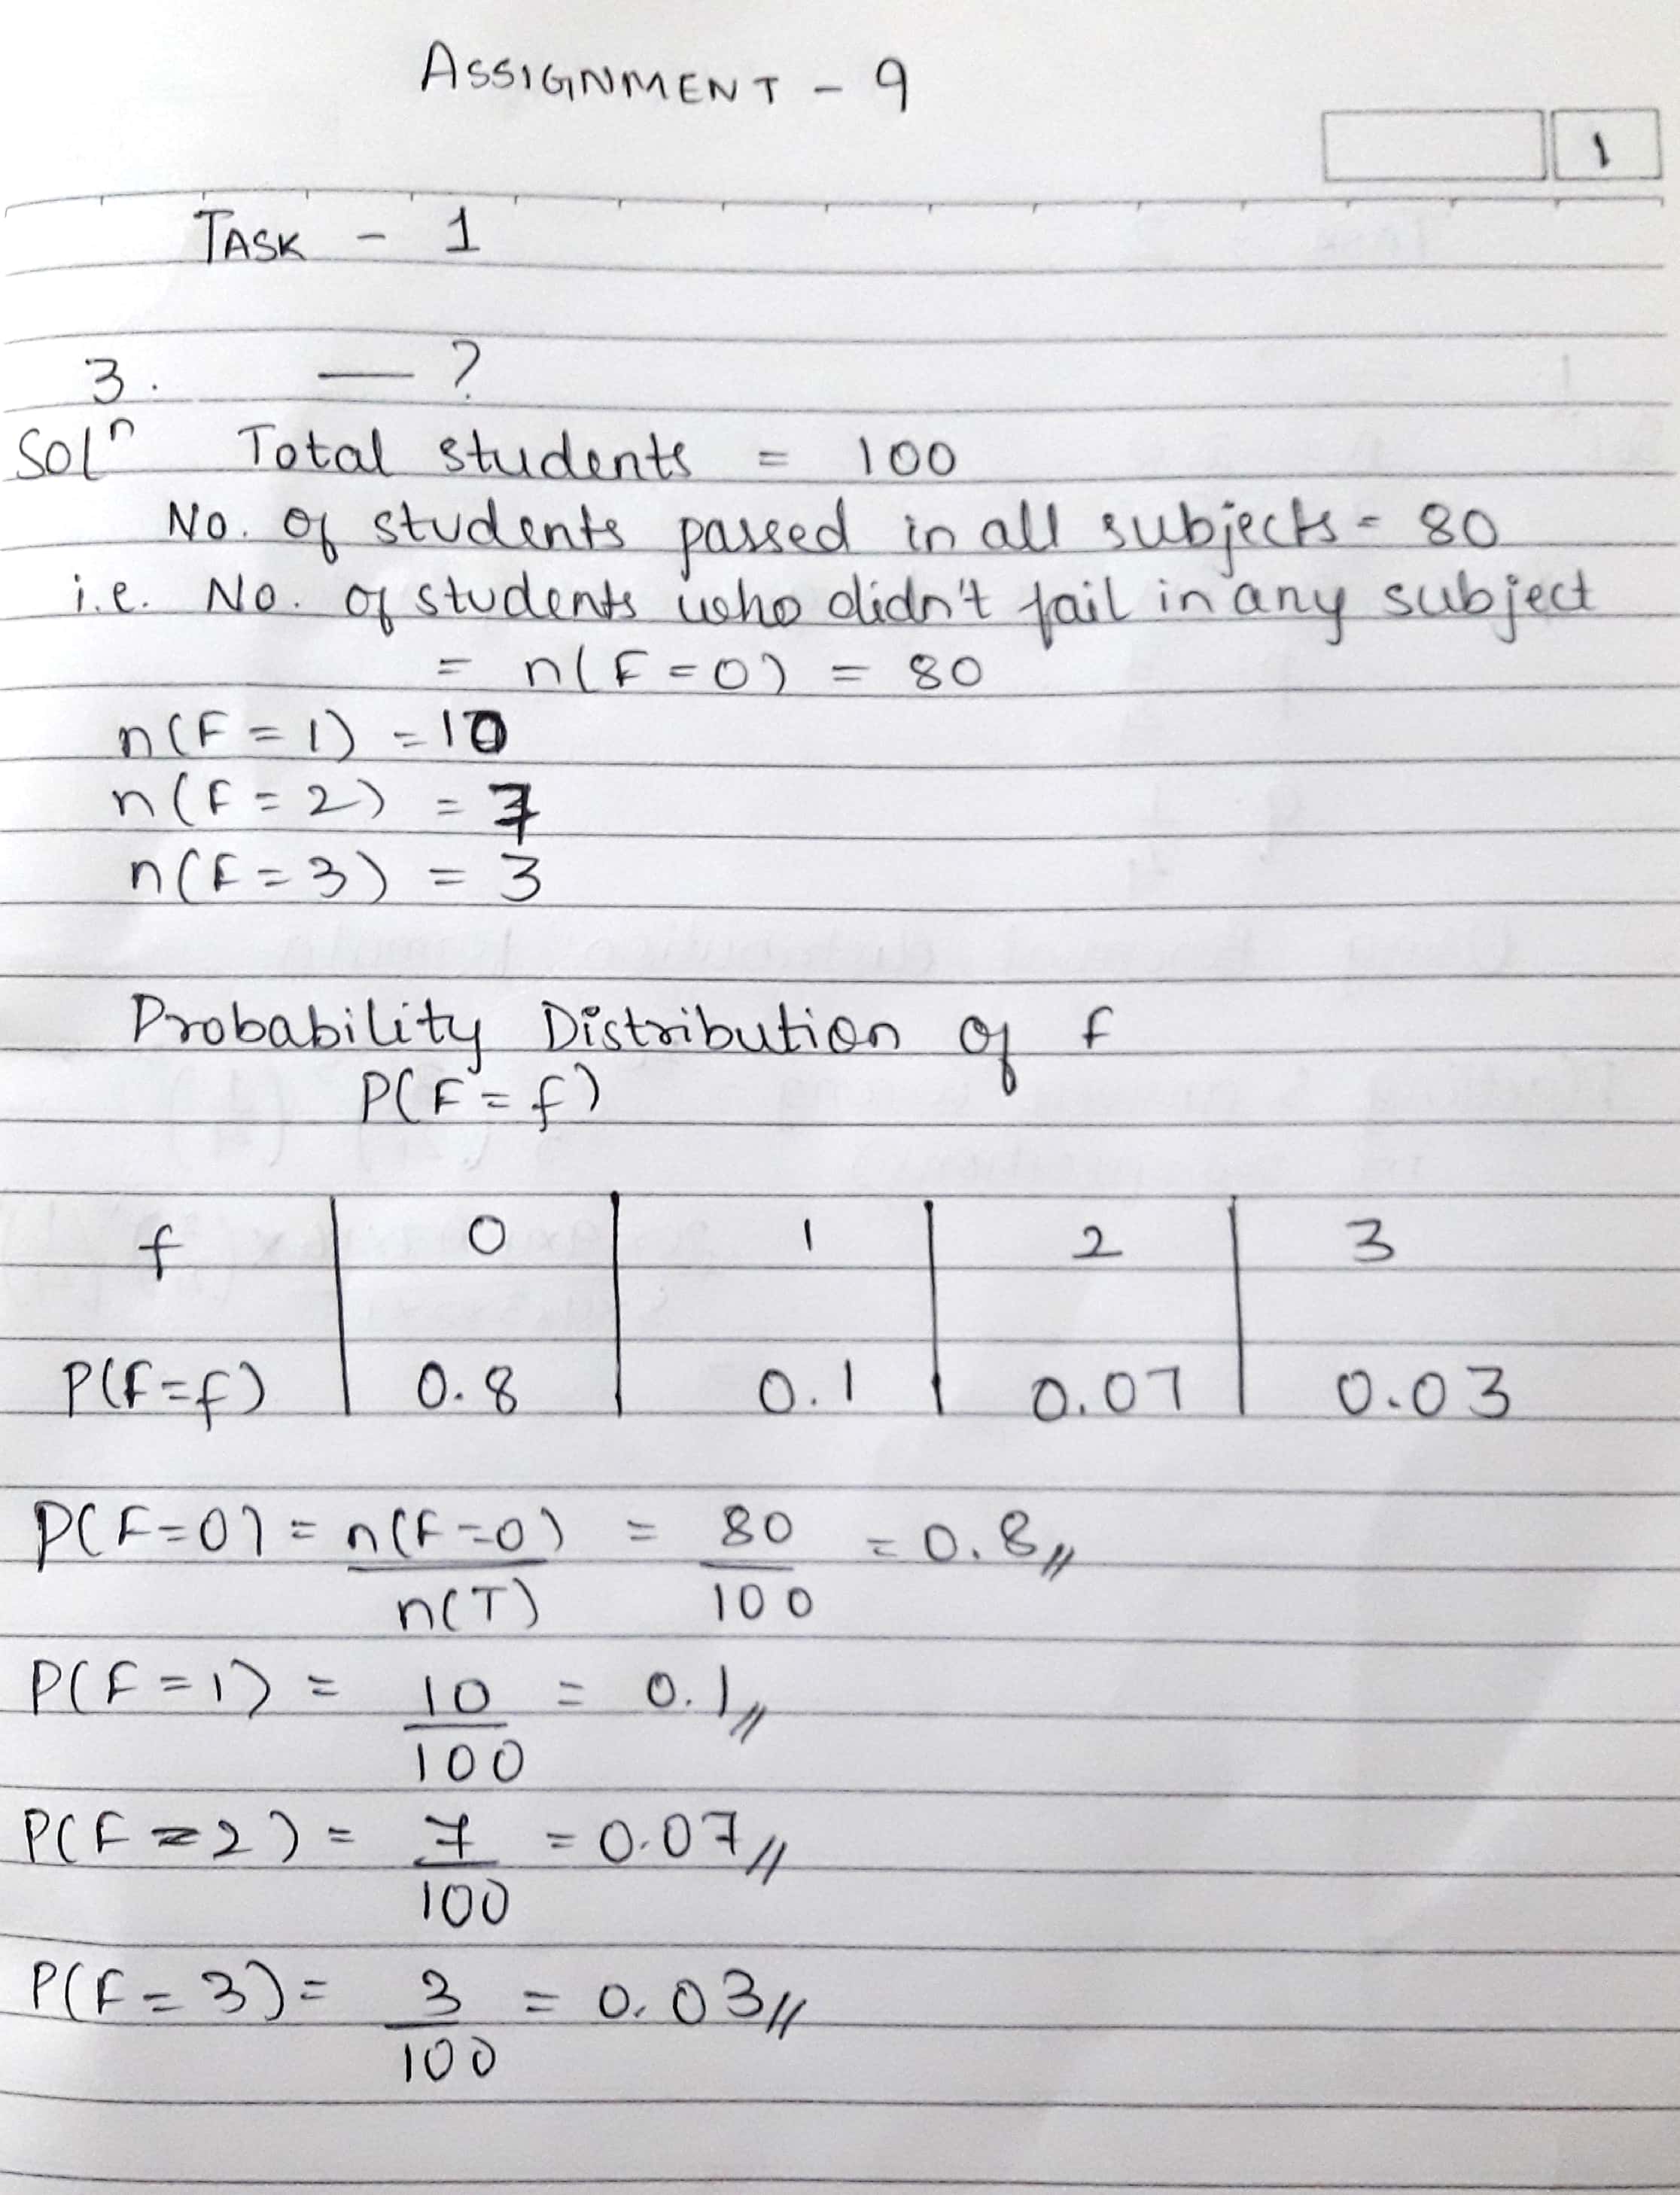 ASSIGNMENT - 9
1
TASK - 1
3. — ?
Solⁿ Total students = 100
No. of students passed in all subjects = 80
i.e. No. of students who didn't fail in any subject
= n(F=0) = 80
n(F=1) = 10
n(F=2) = 7
n(F=3) = 3
Probability Distribution of f
P(F=f)
f | 0 | 1 | 2 | 3
P(F=f) | 0.8 | 0.1 | 0.07 | 0.03
P(F=0) = n(F=0) = 80 = 0.8//
n(T) 100
P(F=1) = 10 = 0.1//
100
P(F=2) = 7 = 0.07//
100
P(F=3) = 3 = 0.03//
100